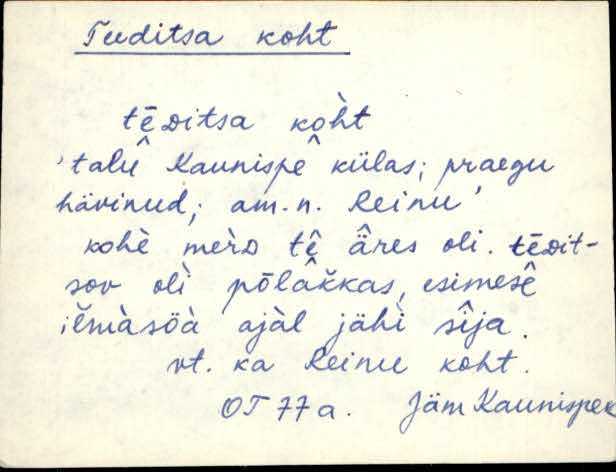 Teeditsa koht
tēᴅitsa kòht
'talû͔ Kaunispê külas; praegu
hävinud; am. n. Reinu'
kohè merᴅ tê ä̂res oli. tēᴅit-
sov olì põlâkkas, esimesê
ilmàsöà ajàl jähì sîja.
vt. ka Reinu koht.
OT 77a. Jäm Kaunispe